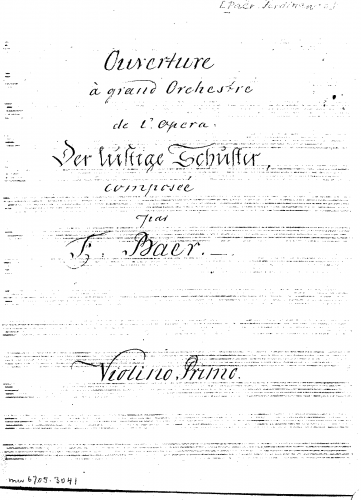 [Paer, Ferdinando]
Ouverture
à grand Orchestre
de l'Opera.
Der lustige Schuster,
composée
par
F. Baer.
Violino Primo.
mu 6705.3041